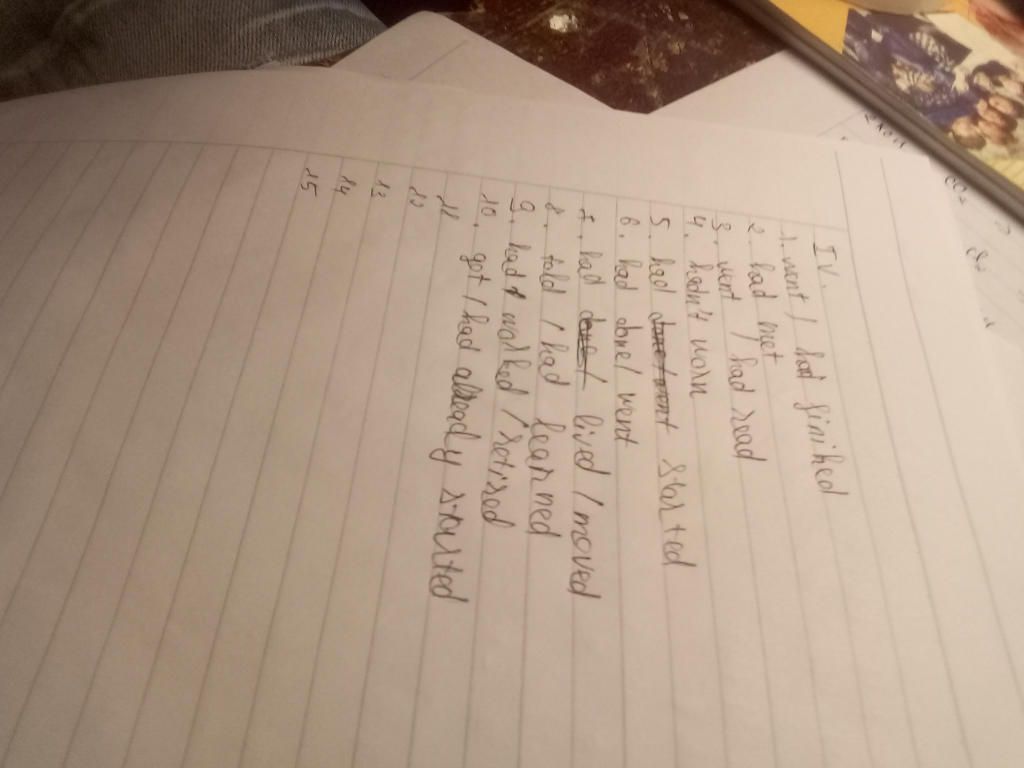 IV.
1. went / had finihed
2. had met
3. went / had read
4. hadn't worn
5. had started
6. had done / went
7. had lived / moved
8. told / had learned
9. had worked / retired
10. got / had alredy started
12
13
14
15